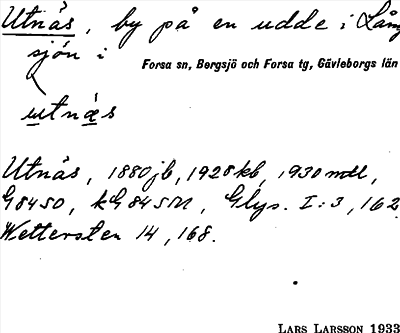 Utnäs, by på en udde i Lång
sjön i
Forsa sn, Bergsjö och Forsa tg, Gävleborgs län
utnä́s
Utnäs, 1880jb, 1928kb, 1930mtl,
G8450, kG845M, Glys. I:3, 162.
Wettersten 14, 168.
LARS LARSSON 1933